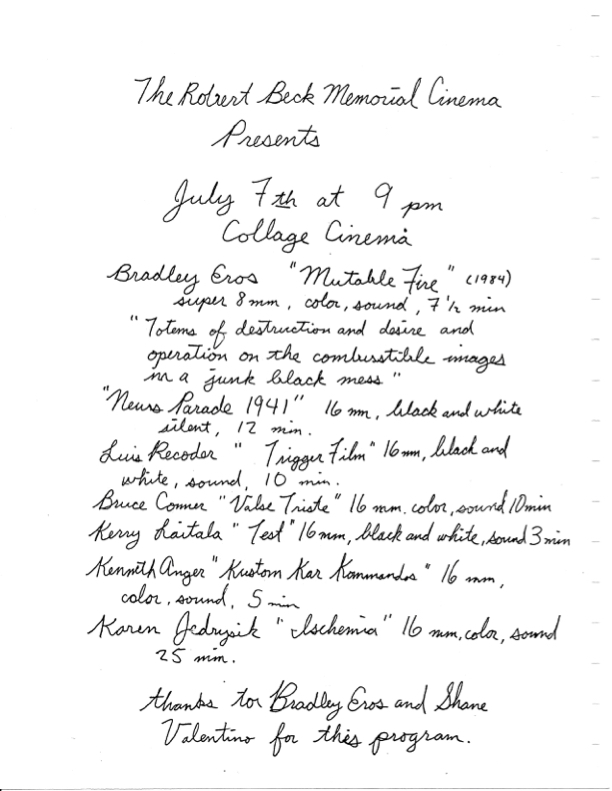 The Robert Beck Memorial Cinema
Presents
July 7th at 9 pm
Collage Cinema
Bradley Eros "Mutable Fire" (1984)
super 8mm, color, sound, 7 1/2 min
"Totems of destruction and desire and
operation on the combustible images
in a junk black mess"
"News Parade 1941" 16 mm, black and white
silent, 12 min.
Luis Recoder "Trigger Film" 16mm, black and
white, sound, 10 min.
Bruce Conner "Valse Triste" 16 mm. color, sound 10min
Kerry Laitala "Test" 16mm, black and white, sound 3 min
Kenneth Anger "Kustom Kar Kommandos" 16 mm,
color, sound, 5 min
Karen Jedrysik "Ischemia" 16 mm, color, sound
25 min.
thanks tor Bradley Eros and Shane
Valentino for this program.